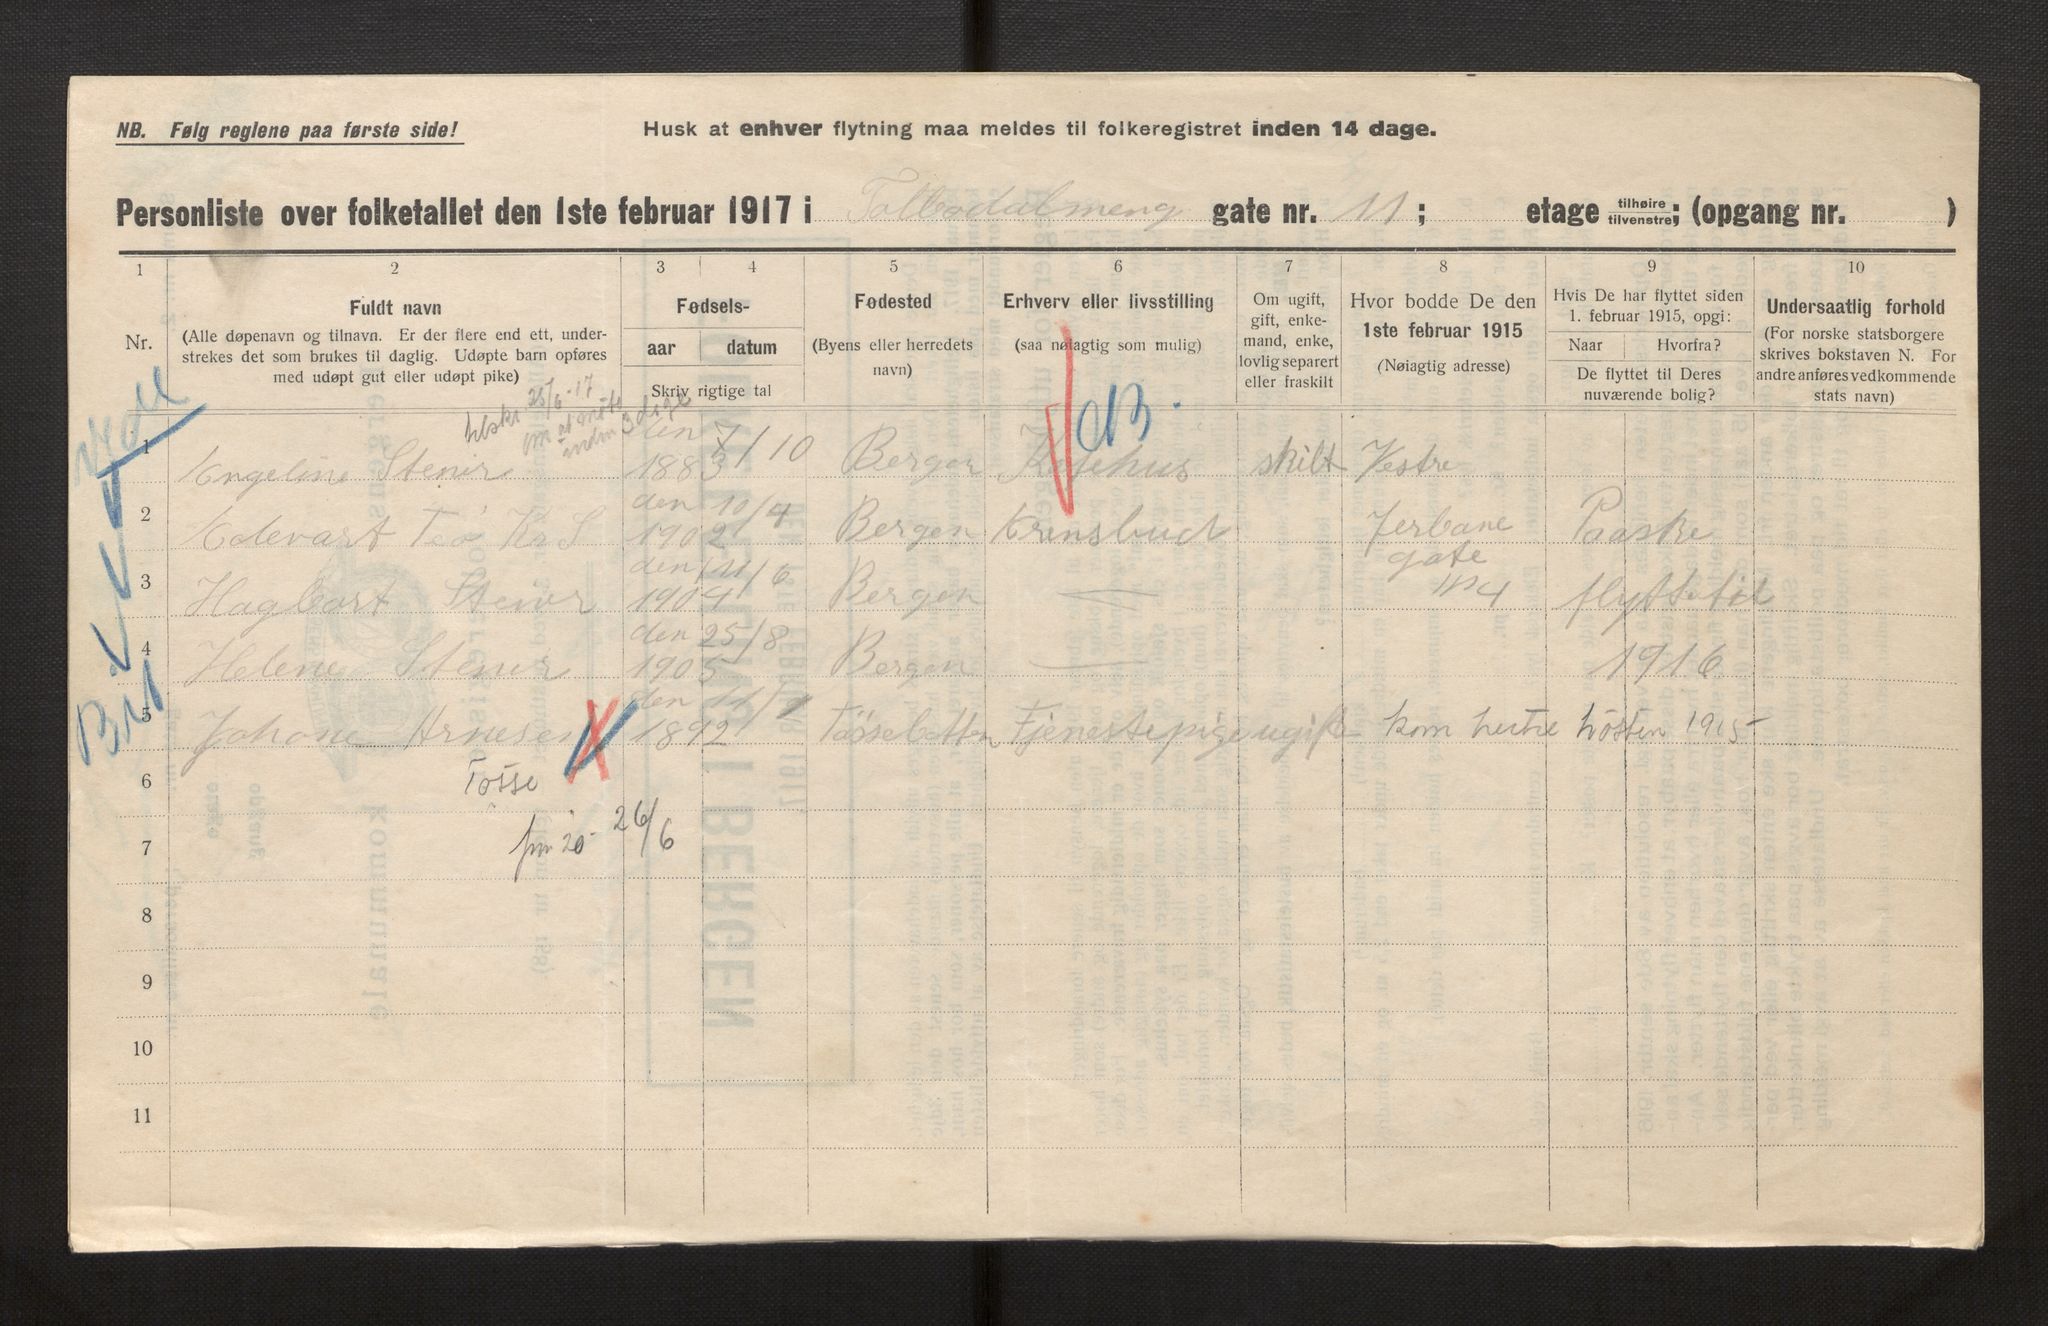 NB. Følg reglene paa første side!
Husk at enhver flytning maa meldes til folkeregistret inden 14 dage.
Personliste over folketallet den 1ste februar 1917 i Tolbodalmeng gate nr. 11 ; etage tilhøire tilvenstre ; (opgang nr. )
1 2 3 4 5 6 7 8 9 10
Nr.
Fuldt navn
(Alle døpenavn og tilnavn. Er der flere end ett, under-
strekes det som brukes til daglig. Udøpte barn opføres
med udøpt gut eller udøpt pike)
Fødsels-
aar datum
Skriv rigtige tal
Fødested
(Byens eller herredets
navn)
Erhverv eller livsstilling
(saa nøiagtig som mulig)
Om ugift,
gift, enke-
mand, enke,
lovlig separert
eller fraskilt
Hvor bodde De den
1ste februar 1915
(Nøiagtig adresse)
Hvis De har flyttet siden
1. februar 1915, opgi:
Naar Hvorfra?
De flyttet til Deres
nuværende bolig?
Undersaatlig forhold
(For norske statsborgere
skrives bokstaven N. For
andre anføres vedkommende
stats navn)
tilskr. 25/6-17
om at møte
inden 3 dage
B.
den 7/10
1 Engeline Stener 1883 Bergen Kafehus skilt Vestre
den 10/4
2 Edevart Teo Kr S 1902 Bergen Krensbud Jerbane Paaske
den 11/6 gate
3 Hagbart Stener 1904 Bergen — no 4 flyttet til
den 25/8
4 Helene Stener 1905 Bergen — 1916
den 11/1
5 Johane Arnesen 1892 Tössebotten Tjenestepige ugift kom hertil hösten 1915
6 Tøsse
7 26/6
8
9
10
11